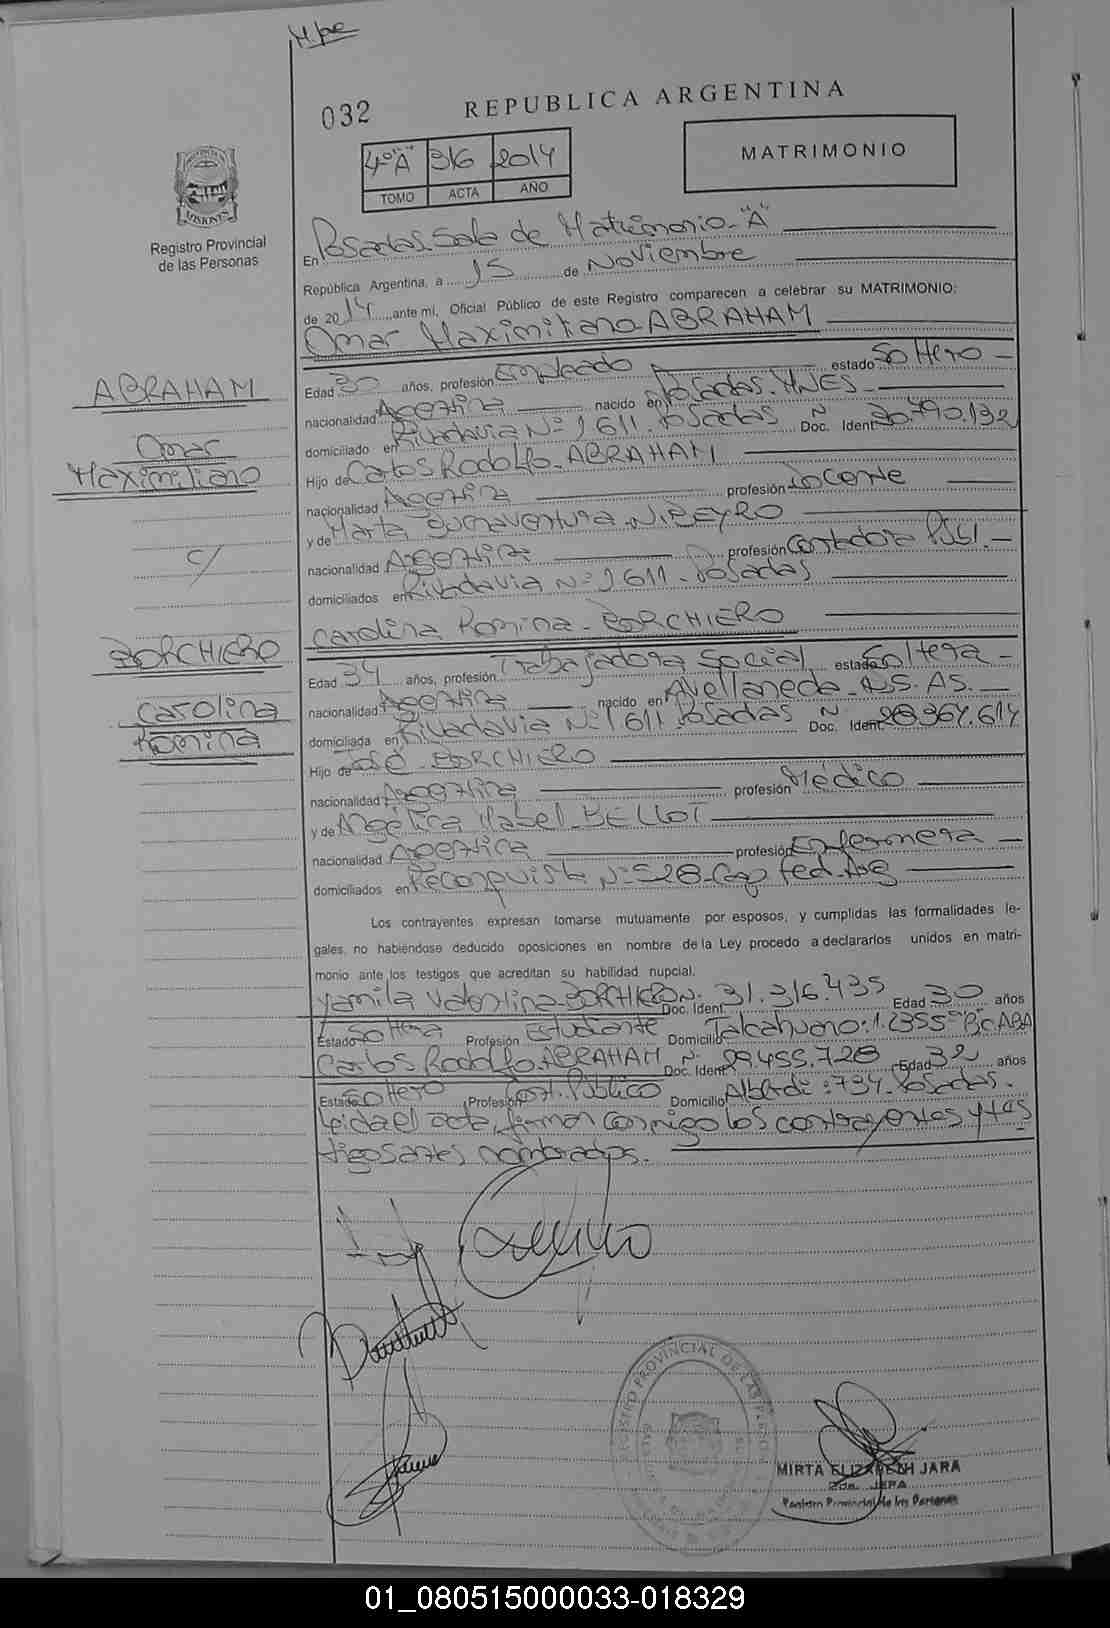 032
REPUBLICA ARGENTINA
4º "A" 316 2014
TOMO ACTA AÑO
MATRIMONIO
PROVINCIA DE MISIONES
Registro Provincial
de las Personas
En Posadas. Sala de Matrimonio - "A"
República Argentina, a 15 de Noviembre
de 2014, ante mí, Oficial Público de este Registro comparecen a celebrar su MATRIMONIO:
Omar Maximiliano ABRAHAM
Edad 30 años, profesión Empleado estado Soltero -
nacionalidad Argentina nacido en Posadas. MNES -
domiciliado en Rivadavia Nº 1611. Posadas Doc. Ident. Nº 30.790.132
Hijo de Carlos Rodolfo - ABRAHAM
nacionalidad Argentina profesión Docente
y de Marta Buenaventura - NIBEYRO
nacionalidad Argentina profesión Contadora -
domiciliados en Rivadavia Nº 1611 - Posadas
ABRAHAM
Omar
Maximiliano
c/
BORCHIERO
Carolina
Romina
Carolina Romina - BORCHIERO
Edad 34 años, profesión Trabajadora Social estado Soltera -
nacionalidad Argentina nacido en Avellaneda - BS. AS. -
domiciliada en Rivadavia Nº 1611 Posadas Doc. Ident. Nº 28.364.614
Hijo de José - BORCHIERO
nacionalidad Argentina profesión Médico
y de Angélica Mabel - BELLOT
nacionalidad Argentina profesión Enfermera -
domiciliados en Reconquista Nº 528 - Cap. Fed.
Los contrayentes expresan tomarse mutuamente por esposos, y cumplidas las formalidades le-
gales, no habiéndose deducido oposiciones en nombre de la Ley procedo a declararlos unidos en matri-
monio ante los testigos que acreditan su habilidad nupcial.
Yamila Valentina BORCHIERO Doc. Ident. Nº 31.316.435 Edad 30 años
Estado Soltera Profesión Estudiante Domicilio Talcahuano: 1.235 CABA
Carlos Rodolfo. ABRAHAM Doc. Ident. Nº 29.455.728 Edad 32 años
Estado Soltero Profesión Cont. Público Domicilio Alberdi: 734. Posadas.
Leida el acta, firman conmigo los contrayentes y tes
tigos antes nombrados.
REGISTRO PROVINCIAL DE LAS PERSONAS
MIRTA ELIZABETH JARA
2da. JEFA
Registro Provincial de las Personas
01_080515000033-018329